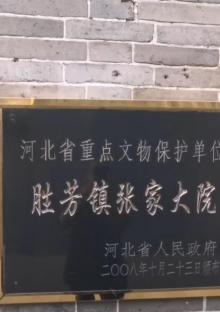 河北省重点文物保护单位
胜芳镇张家大院
河北省人民政府
二〇〇八年十月二十三日颁布